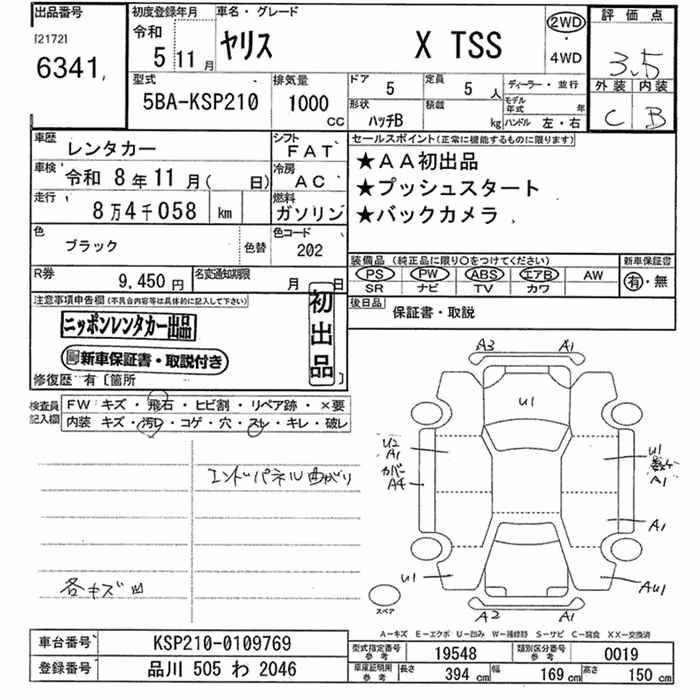 出品番号
[2172]
6341
初度登録年月
令和
5 11月
車名・グレード
ヤリス X TSS
2WD
・
4WD
評価点
3.5
外装 内装
C B
型式
5BA-KSP210
排気量
1000
CC
ドア
5
定員
5 人
ディーラー・並行
形状
ハッチB
積載
kg
モデル年式
年
ハンドル 左・右
車歴
レンタカー
シフト
FAT
車検
令和 8年11月( 日)
冷房
AC
走行
8万4千058 km
燃料
ガソリン
色
ブラック
色替
色コード
202
R券
9,450円
名変通知期限
月 日
セールスポイント(正常に機能するものに限ります)
★AA初出品
★プッシュスタート
★バックカメラ
装備品 (純正品に限り○をつけてください)
新車保証書
PS PW ABS エアB AW
SR ナビ TV カワ
有・無
後日品
保証書・取説
注意事項申告欄(不具合内容等は具体的に記入して下さい)
ニッポンレンタカー出品
新車保証書・取説付き
初出品
修復歴 有〔箇所
検査員記入欄
FW キズ・飛石・ヒビ割・リペア跡・×要
内装 キズ・汚れ・コゲ・穴・スレ・キレ・破レ
エンドパネル曲がり
各キズ凹
A3 A1
U1
U2
A1
カバー
A4
U1
A1
A1
U1
AU1
A2 A1
スペア
A-キズ E-エクボ U-凹み W-補修跡 S-サビ C-腐食 XX-交換済
車台番号
KSP210-0109769
登録番号
品川 505 わ 2046
型式指定番号
参考
19548
類別区分番号
参考
0019
車庫証明用
参考
長さ
394 cm
幅
169 cm
高さ
150 cm